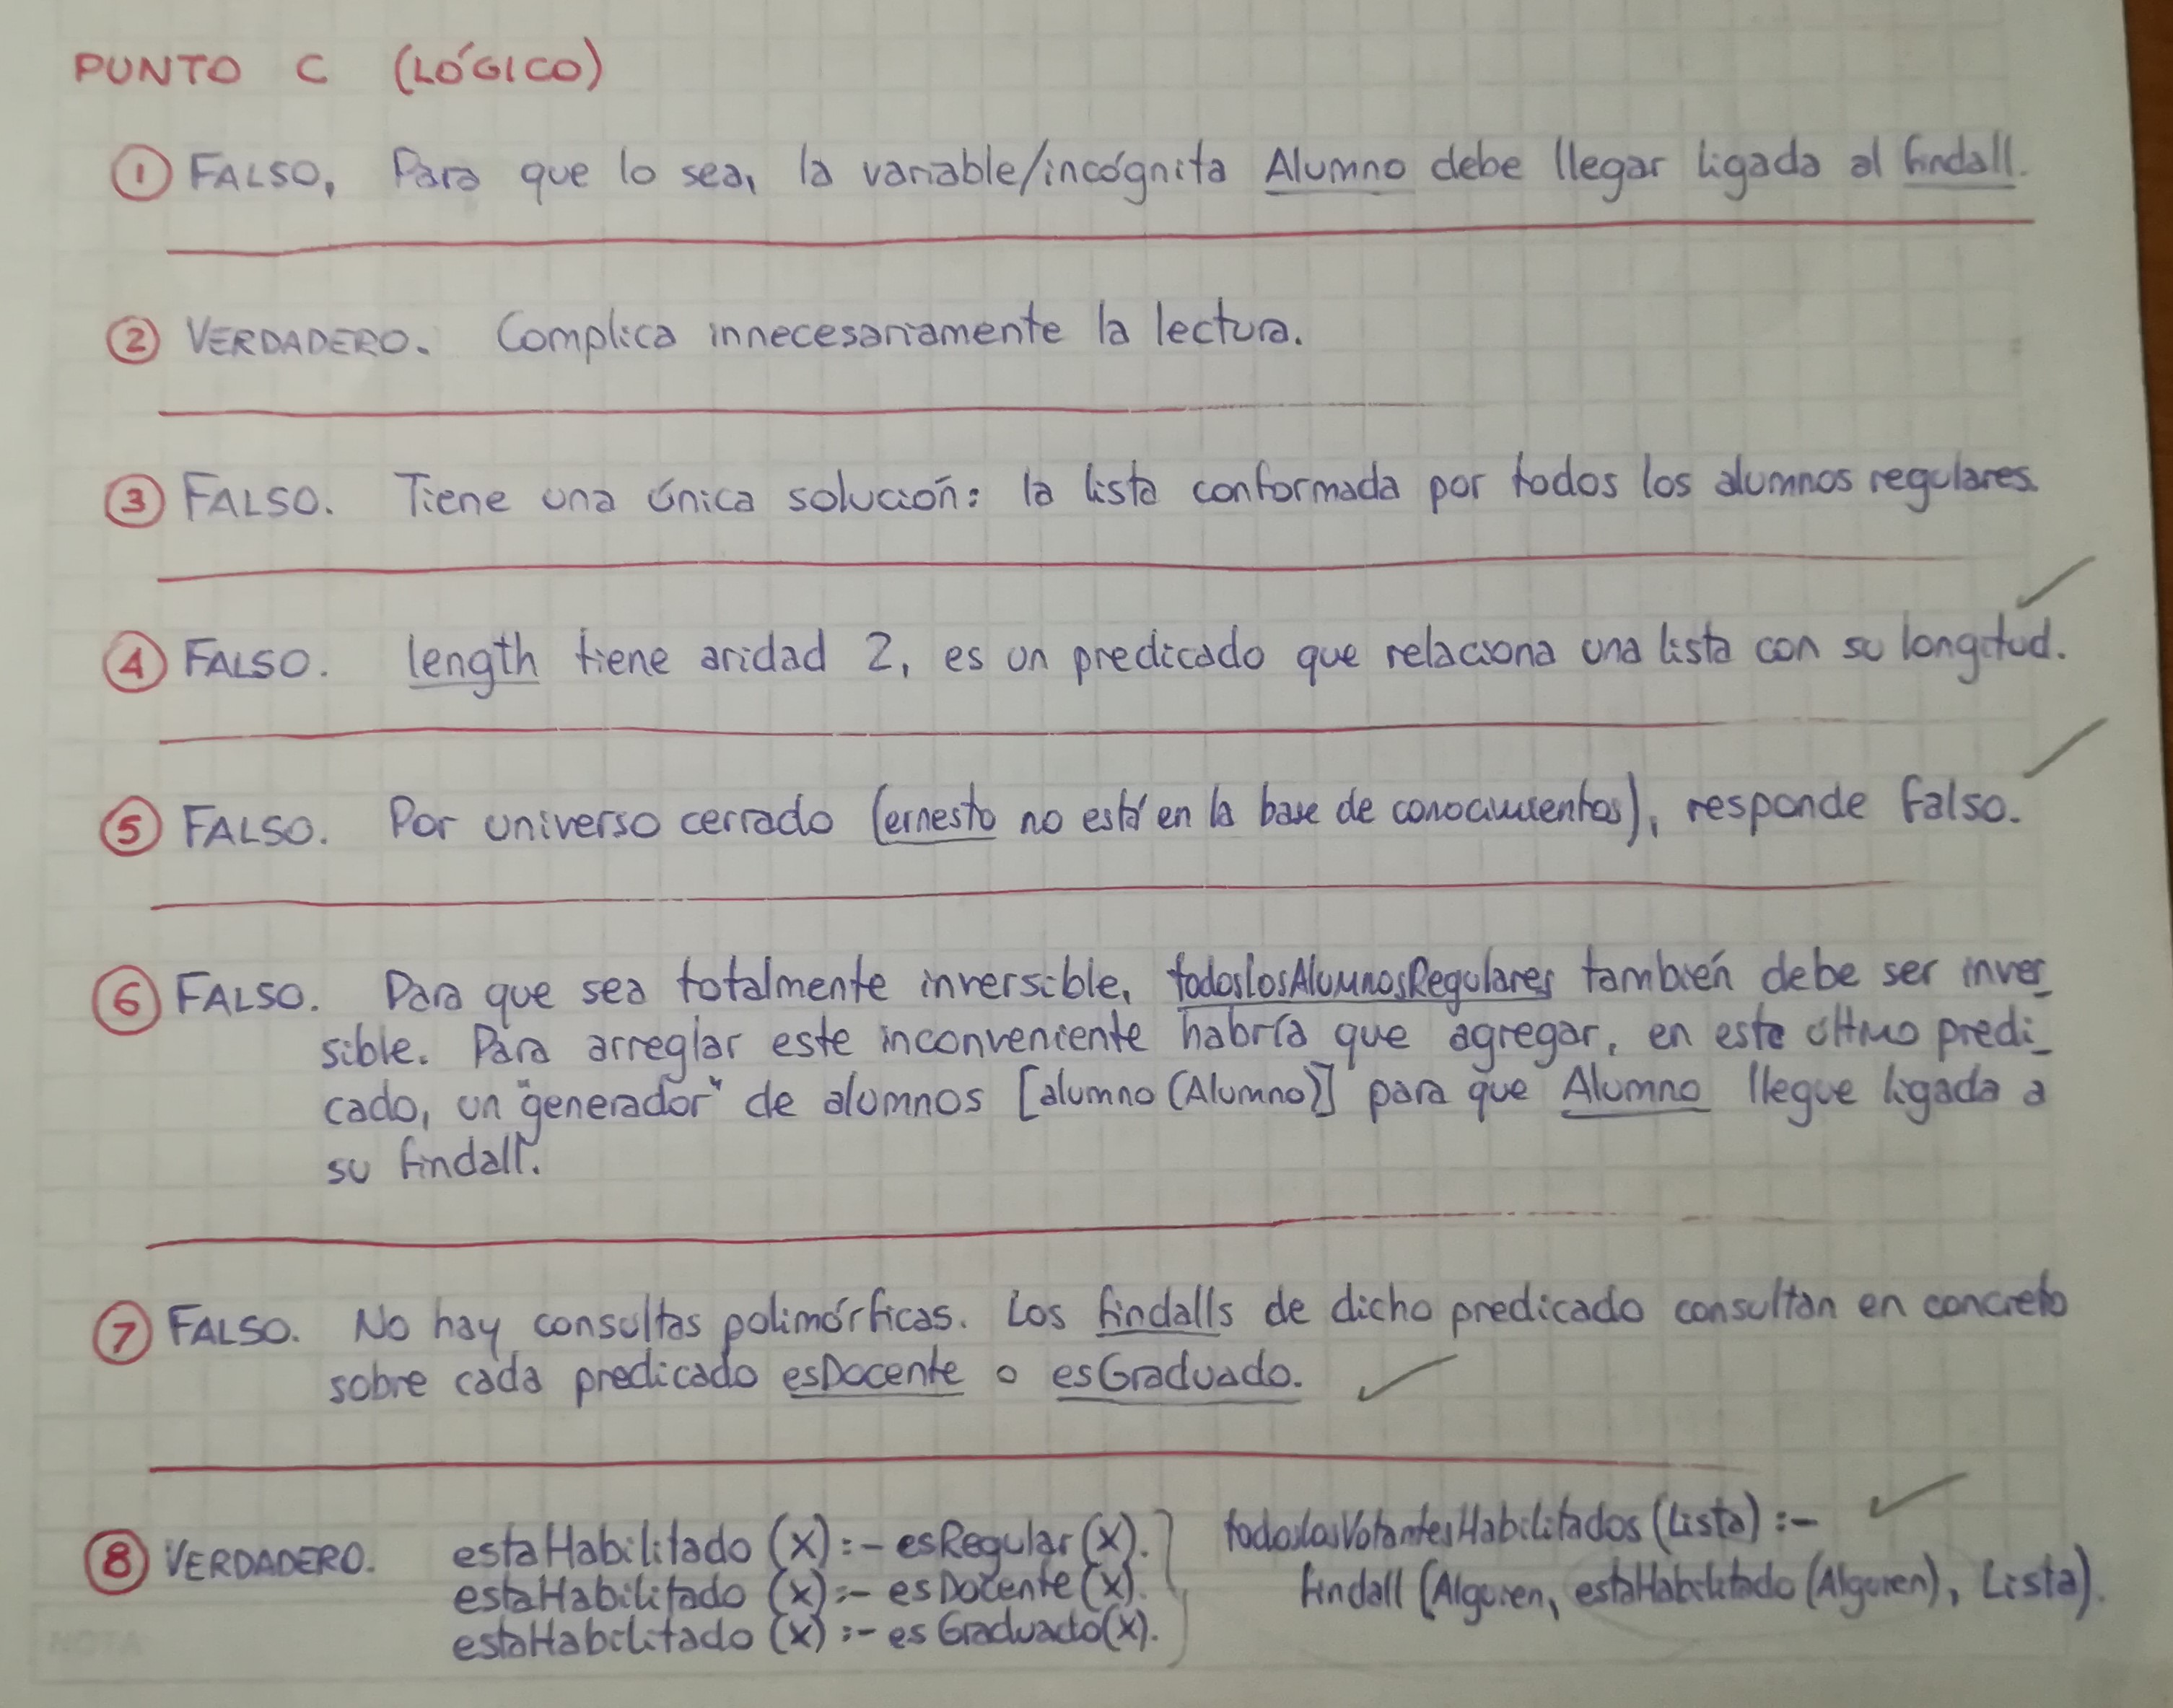 PUNTO C (LÓGICO)
① FALSO, Para que lo sea, la variable/incógnita Alumno debe llegar ligada al findall.
② VERDADERO. Complica innecesariamente la lectura.
③ FALSO. Tiene una única solución: la lista conformada por todos los alumnos regulares.
④ FALSO. length tiene aridad 2, es un predicado que relaciona una lista con su longitud.
⑤ FALSO. Por universo cerrado (ernesto no está en la base de conocimientos), responde falso.
⑥ FALSO. Para que sea totalmente inversible, todoslosAlumnosRegulares también debe ser inver_
sible. Para arreglar este inconveniente habría que agregar, en este último predi_
cado, un "generador" de alumnos [alumno(Alumno)] para que Alumno llegue ligada a
su findall.
⑦ FALSO. No hay consultas polimórficas. Los findalls de dicho predicado consultan en concreto
sobre cada predicado esDocente o esGraduado.
⑧ VERDADERO. estaHabilitado (X):- esRegular(X). todoslosVotantesHabilitados (Lista) :-
estaHabilitado (X):- esDocente(X). findall (Alguien, estaHabilitado (Alguien), Lista).
estaHabilitado (X) :- esGraduado(X).
NOTA